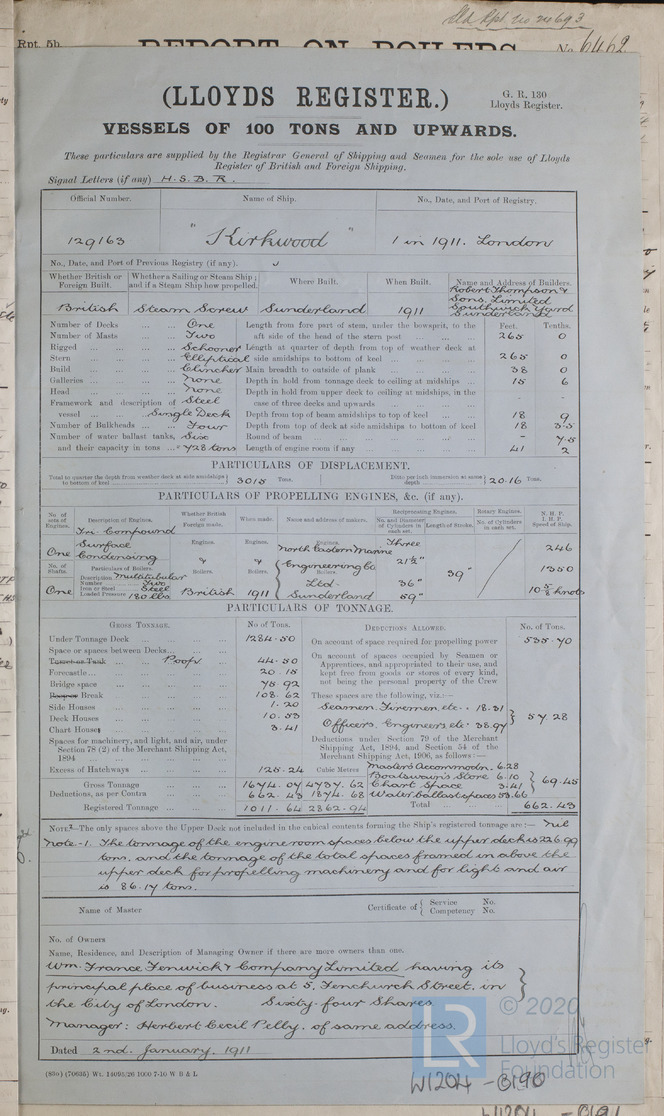 Old Rpt. No 20693
Rpt. 5b.
REPORT ON BOILERS
No. 6462
(LLOYDS REGISTER.)
G. R. 130
Lloyds Register.
VESSELS OF 100 TONS AND UPWARDS.
These particulars are supplied by the Registrar General of Shipping and Seamen for the sole use of Lloyds
Register of British and Foreign Shipping.
Signal Letters (if any) H.S.B.R.
Official Number. Name of Ship. No., Date, and Port of Registry.
129163 "Kirkwood" 1 in 1911. London
No., Date, and Port of Previous Registry (if any).
Whether British or Foreign Built. Whether a Sailing or Steam Ship; and if a Steam Ship how propelled. Where Built. When Built. Name and Address of Builders.
British Steam Screw Sunderland 1911 Robert Thompson & Sons, Limited Southwick Yard Sunderland
Number of Decks One Length from fore part of stem, under the bowsprit, to the Feet. Tenths.
Number of Masts Two aft side of the head of the stern post 265 0
Rigged Schooner Length at quarter of depth from top of weather deck at
Stern Elliptical side amidships to bottom of keel 265 0
Build Clincher Main breadth to outside of plank 38 0
Galleries None Depth in hold from tonnage deck to ceiling at midships 15 6
Head None Depth in hold from upper deck to ceiling at midships, in the
Framework and description of Steel case of three decks and upwards - -
vessel Single Deck Depth from top of beam amidships to top of keel 18 9
Number of Bulkheads Four Depth from top of deck at side amidships to bottom of keel 18 3.5
Number of water ballast tanks, Six Round of beam - 7.5
and their capacity in tons 428 tons Length of engine room if any 41 2
PARTICULARS OF DISPLACEMENT.
Total to quarter the depth from weather deck at side amidships to bottom of keel 3015 Tons. Ditto per inch immersion at same depth 20.16 Tons.
PARTICULARS OF PROPELLING ENGINES, &c. (if any).
No. of sets of Engines. Description of Engines. Whether British or Foreign made. When made. Name and address of makers. Reciprocating Engines. Rotary Engines. N. H. P. I. H. P. Speed of Ship.
No. and Diameter of Cylinders in each set. Length of Stroke. No. of Cylinders in each set.
Tri. Compound
Surface Engines. Engines. Engines. Three
One Condensing North Eastern Marine 21½" 246
No. of Shafts. Particulars of Boilers. Boilers. Boilers. Engineering Co Boilers. 39" 1350
Description Multitubular
Number Two Ltd. 36"
One Iron or Steel Steel British 1911 Sunderland 59" 10⅝ knots
Loaded Pressure 180 lbs
PARTICULARS OF TONNAGE.
GROSS TONNAGE. No of Tons. DEDUCTIONS ALLOWED. No. of Tons.
Under Tonnage Deck 1284.50 On account of space required for propelling power 535.70
Space or spaces between Decks On account of spaces occupied by Seamen or
Turret or Trunk Poop 44.50 Apprentices, and appropriated to their use, and
Forecastle 20.15 kept free from goods or stores of every kind,
Bridge space 75.92 not being the personal property of the Crew
Break 108.62 These spaces are the following, viz.:—
Side Houses 1.20 Seamen, Firemen etc. 18.31
Deck Houses 10.53 Officers, Engineers etc. 38.97 57.28
Chart Houses 3.41
Spaces for machinery, and light, and air, under Deductions under Section 79 of the Merchant
Section 78 (2) of the Merchant Shipping Act, Shipping Act, 1894, and Section 54 of the
1894 Merchant Shipping Act, 1906, as follows:—
Excess of Hatchways 125.24 Cubic Metres Master's Accommodn. 6.28
Boatswain's Store 6.10
Gross Tonnage 1674.07 4737.62 Chart Space 3.41 69.45
Deductions, as per Contra 662.43 1874.68 Water ballast spaces 53.66
Registered Tonnage 1011.64 2862.94 Total 662.43
NOTE—The only spaces above the Upper Deck not included in the cubical contents forming the Ship's registered tonnage are:— Nil
Note-1. The tonnage of the engine room spaces below the upper deck is 226.99
tons. and the tonnage of the total spaces framed in above the
upper deck for propelling machinery and for light and air
is 86.17 tons.
Name of Master Certificate of Service No.
Competency No.
No. of Owners
Name, Residence, and Description of Managing Owner if there are more owners than one.
Wm. France Fenwick & Company Limited having its
principal place of business at 5. Fenchurch Street. in
the City of London. Sixty-four Shares
Manager: Herbert Cecil Pelly. of same address.
Dated 2nd. January, 1911
(85o) (70635) Wt. 14695/26 1000 7-10 W B & L
© 2020
LR
Lloyd's Register
Foundation
W1204-0190
W1204-0191